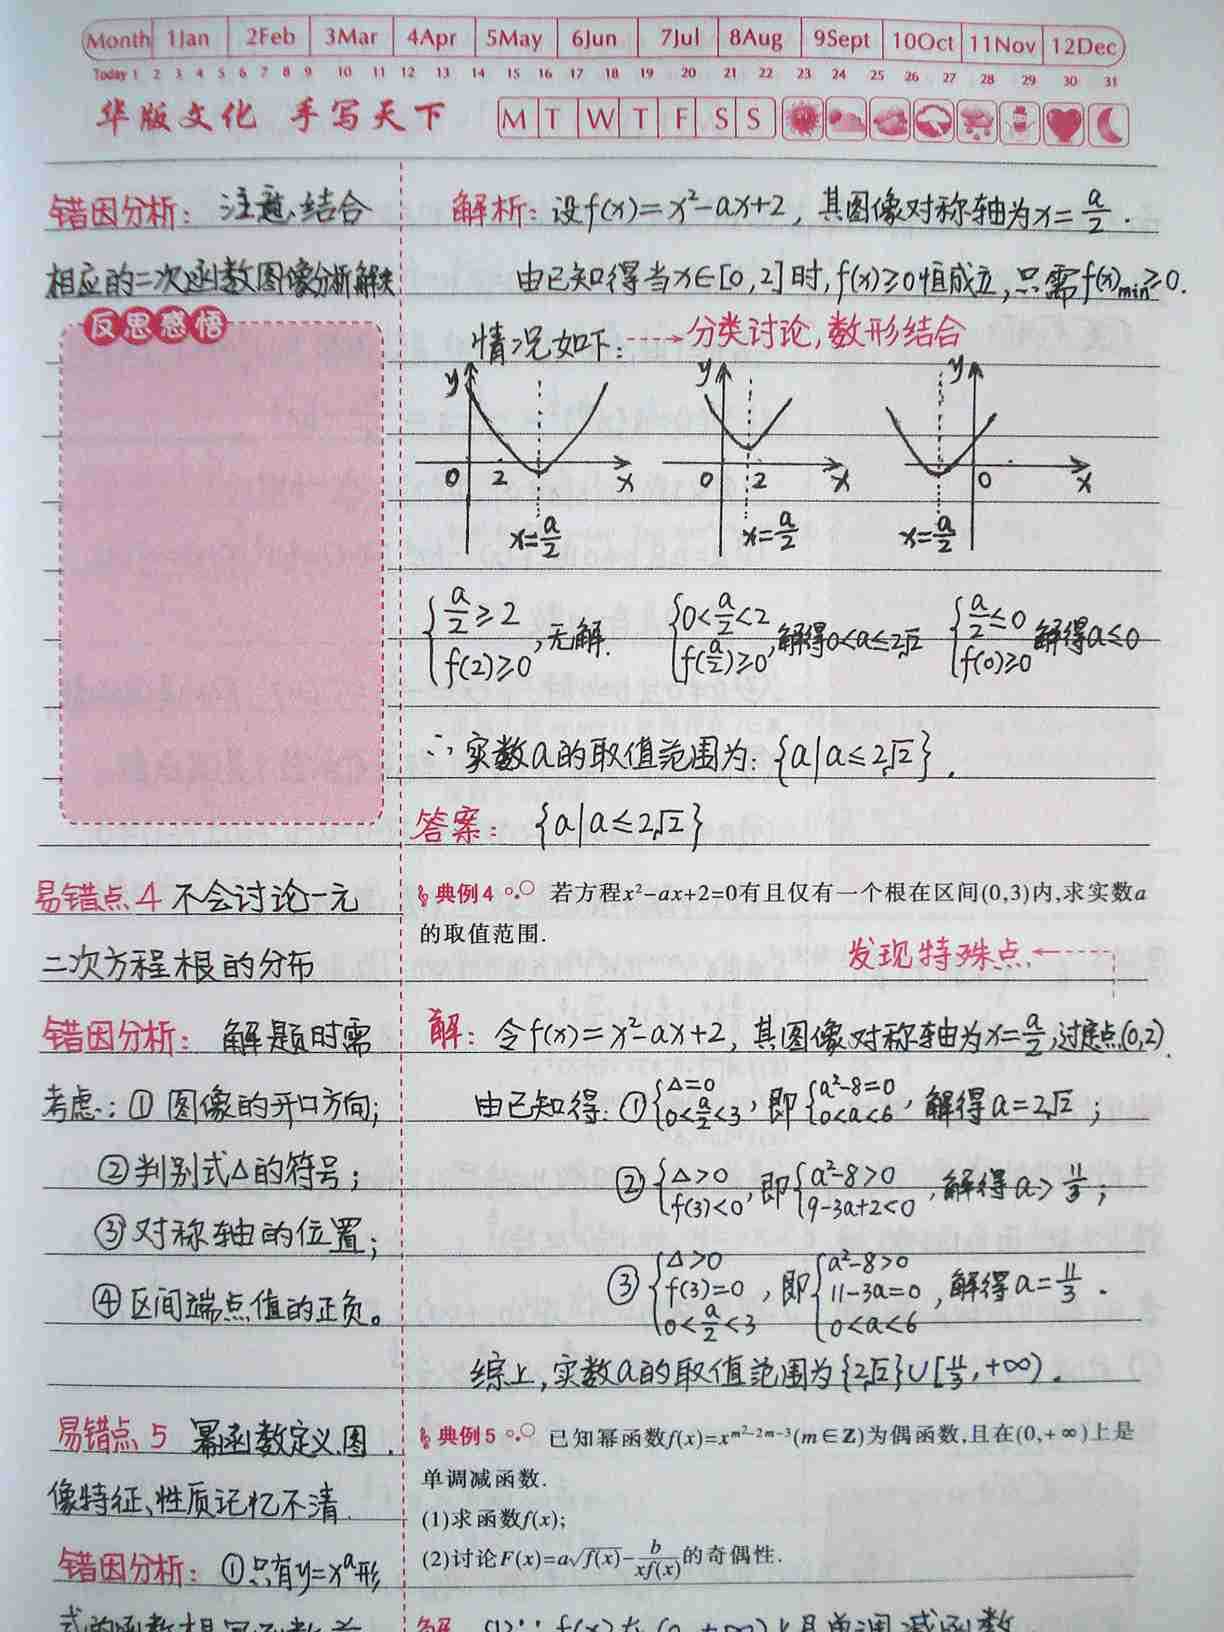 Month 1Jan 2Feb 3Mar 4Apr 5May 6Jun 7Jul 8Aug 9Sept 10Oct 11Nov 12Dec
Today 1 2 3 4 5 6 7 8 9 10 11 12 13 14 15 16 17 18 19 20 21 22 23 24 25 26 27 28 29 30 31
华版文化 手写天下 M T W T F S S
错因分析：注意、结合
相应的二次函数图像分析解决
反思感悟
解析：设f(x)=x²-ax+2，其图像对称轴为x=a/2.
由已知得当x∈[0,2]时,f(x)≥0恒成立,只需f(x)min≥0.
情况如下：→分类讨论,数形结合
y y y
0 2 x 0 2 x 0 x
x=a/2 x=a/2 x=a/2
{a/2≥2 f(2)≥0,无解. {0<a/2<2 f(a/2)≥0,解得0<a≤2√2 {a/2≤0 f(0)≥0 解得a≤0
∴实数a的取值范围为：{a|a≤2√2}.
答案：{a|a≤2√2}
易错点4 不会讨论一元
二次方程根的分布
错因分析：解题时需
考虑：①图像的开口方向；
②判别式Δ的符号；
③对称轴的位置；
④区间端点值的正负。
典例4 若方程x²-ax+2=0有且仅有一个根在区间(0,3)内,求实数a
的取值范围.
发现特殊点←
解：令f(x)=x²-ax+2，其图像对称轴为x=a/2,过定点(0,2).
由已知得：①{Δ=0 0<a/2<3，即{a²-8=0 0<a<6，解得a=2√2；
②{Δ>0 f(3)<0，即{a²-8>0 9-3a+2<0，解得a>11/3；
③{Δ>0 f(3)=0 0<a/2<3，即{a²-8>0 11-3a=0 0<a<6，解得a=11/3.
综上,实数a的取值范围为{2√2}∪[11/3,+∞).
易错点5 幂函数定义、图
像特征、性质记忆不清.
错因分析：①只有y=xᵃ形
式的函数
典例5 已知幂函数f(x)=x^(m²-2m-3)(m∈Z)为偶函数,且在(0,+∞)上是
单调减函数.
(1)求函数f(x);
(2)讨论F(x)=a√f(x)-b/xf(x)的奇偶性.
解 (1)∵f(x)在(0,+∞)上是单调减函数